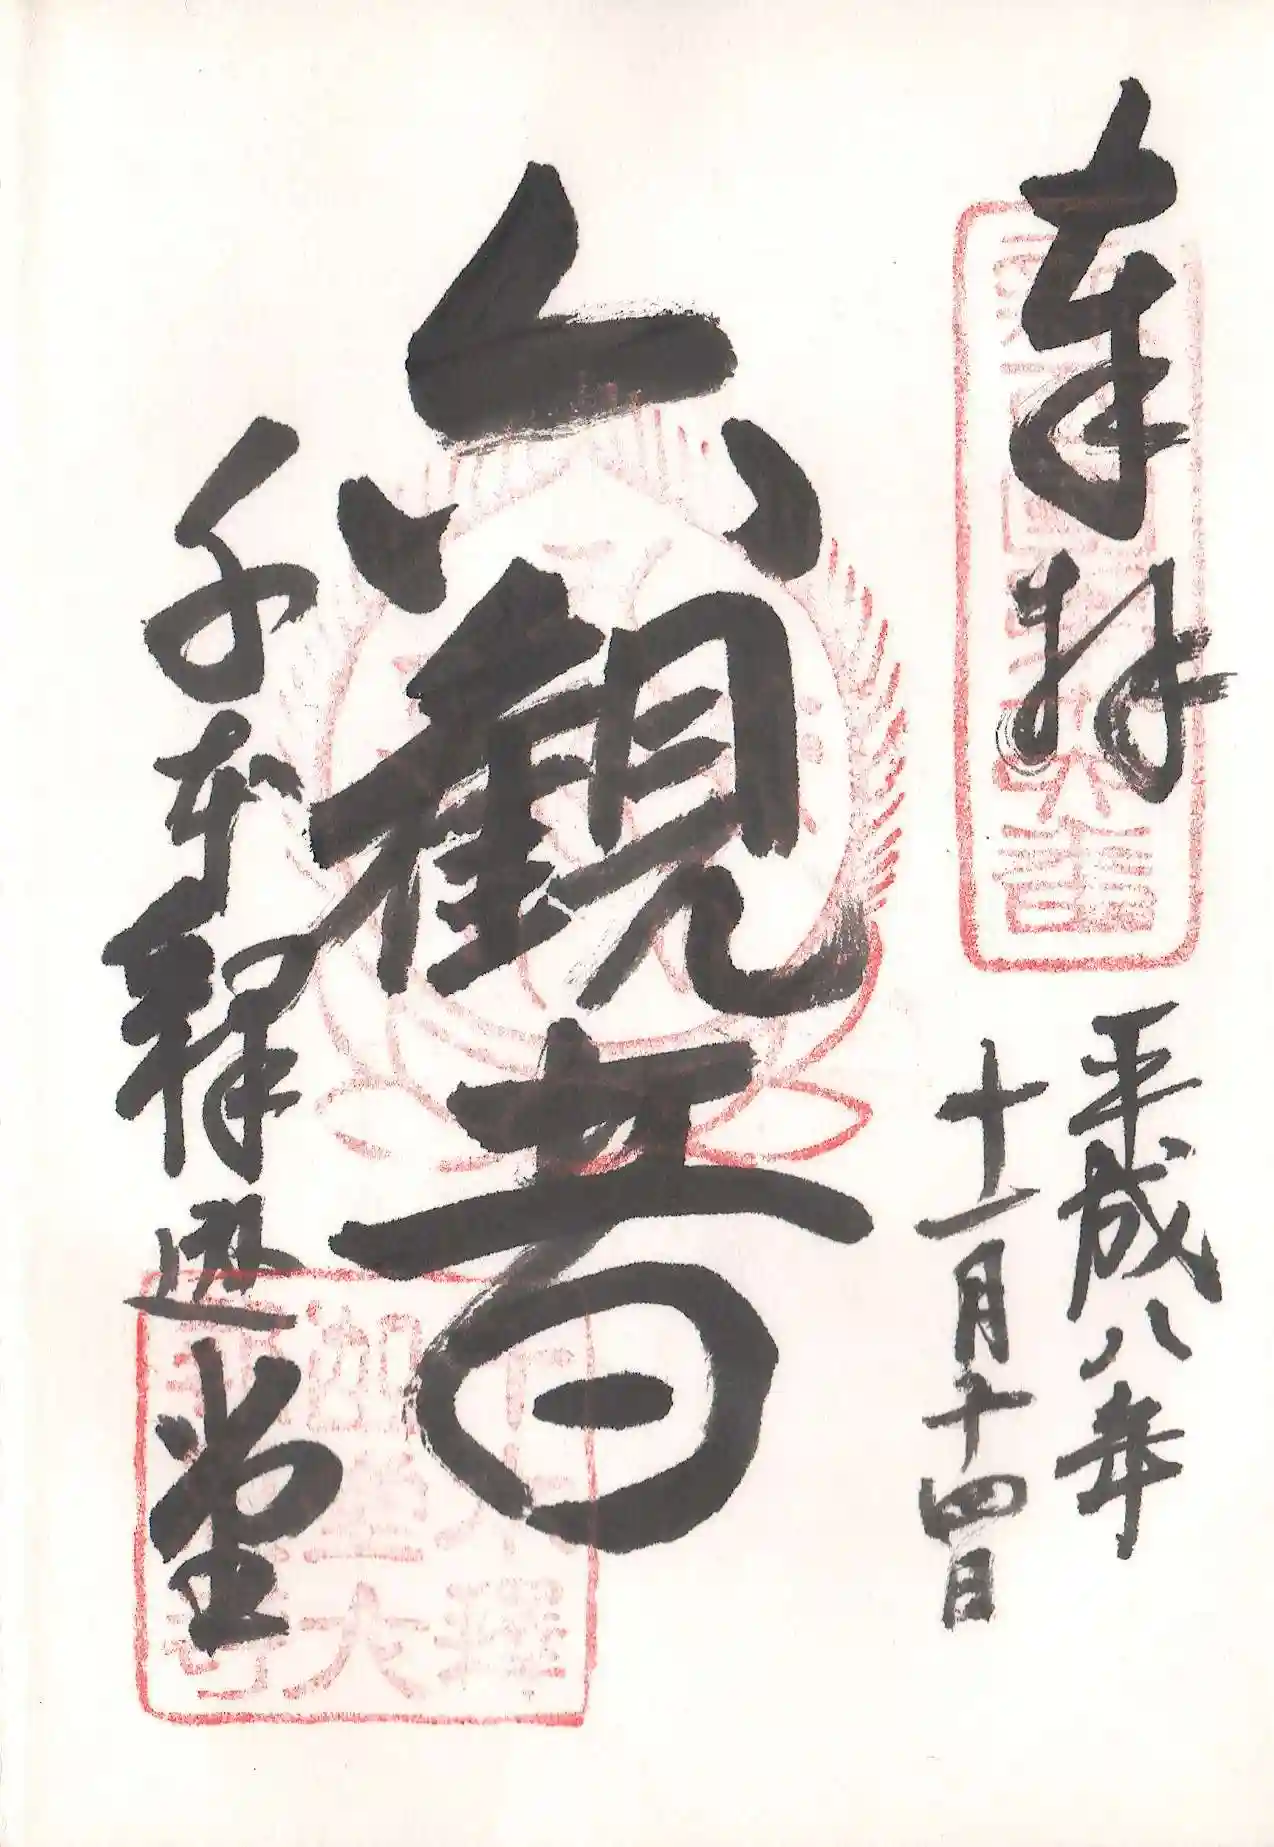 奉拝
平成八年
十一月十四日
六観音
千本釈迦堂